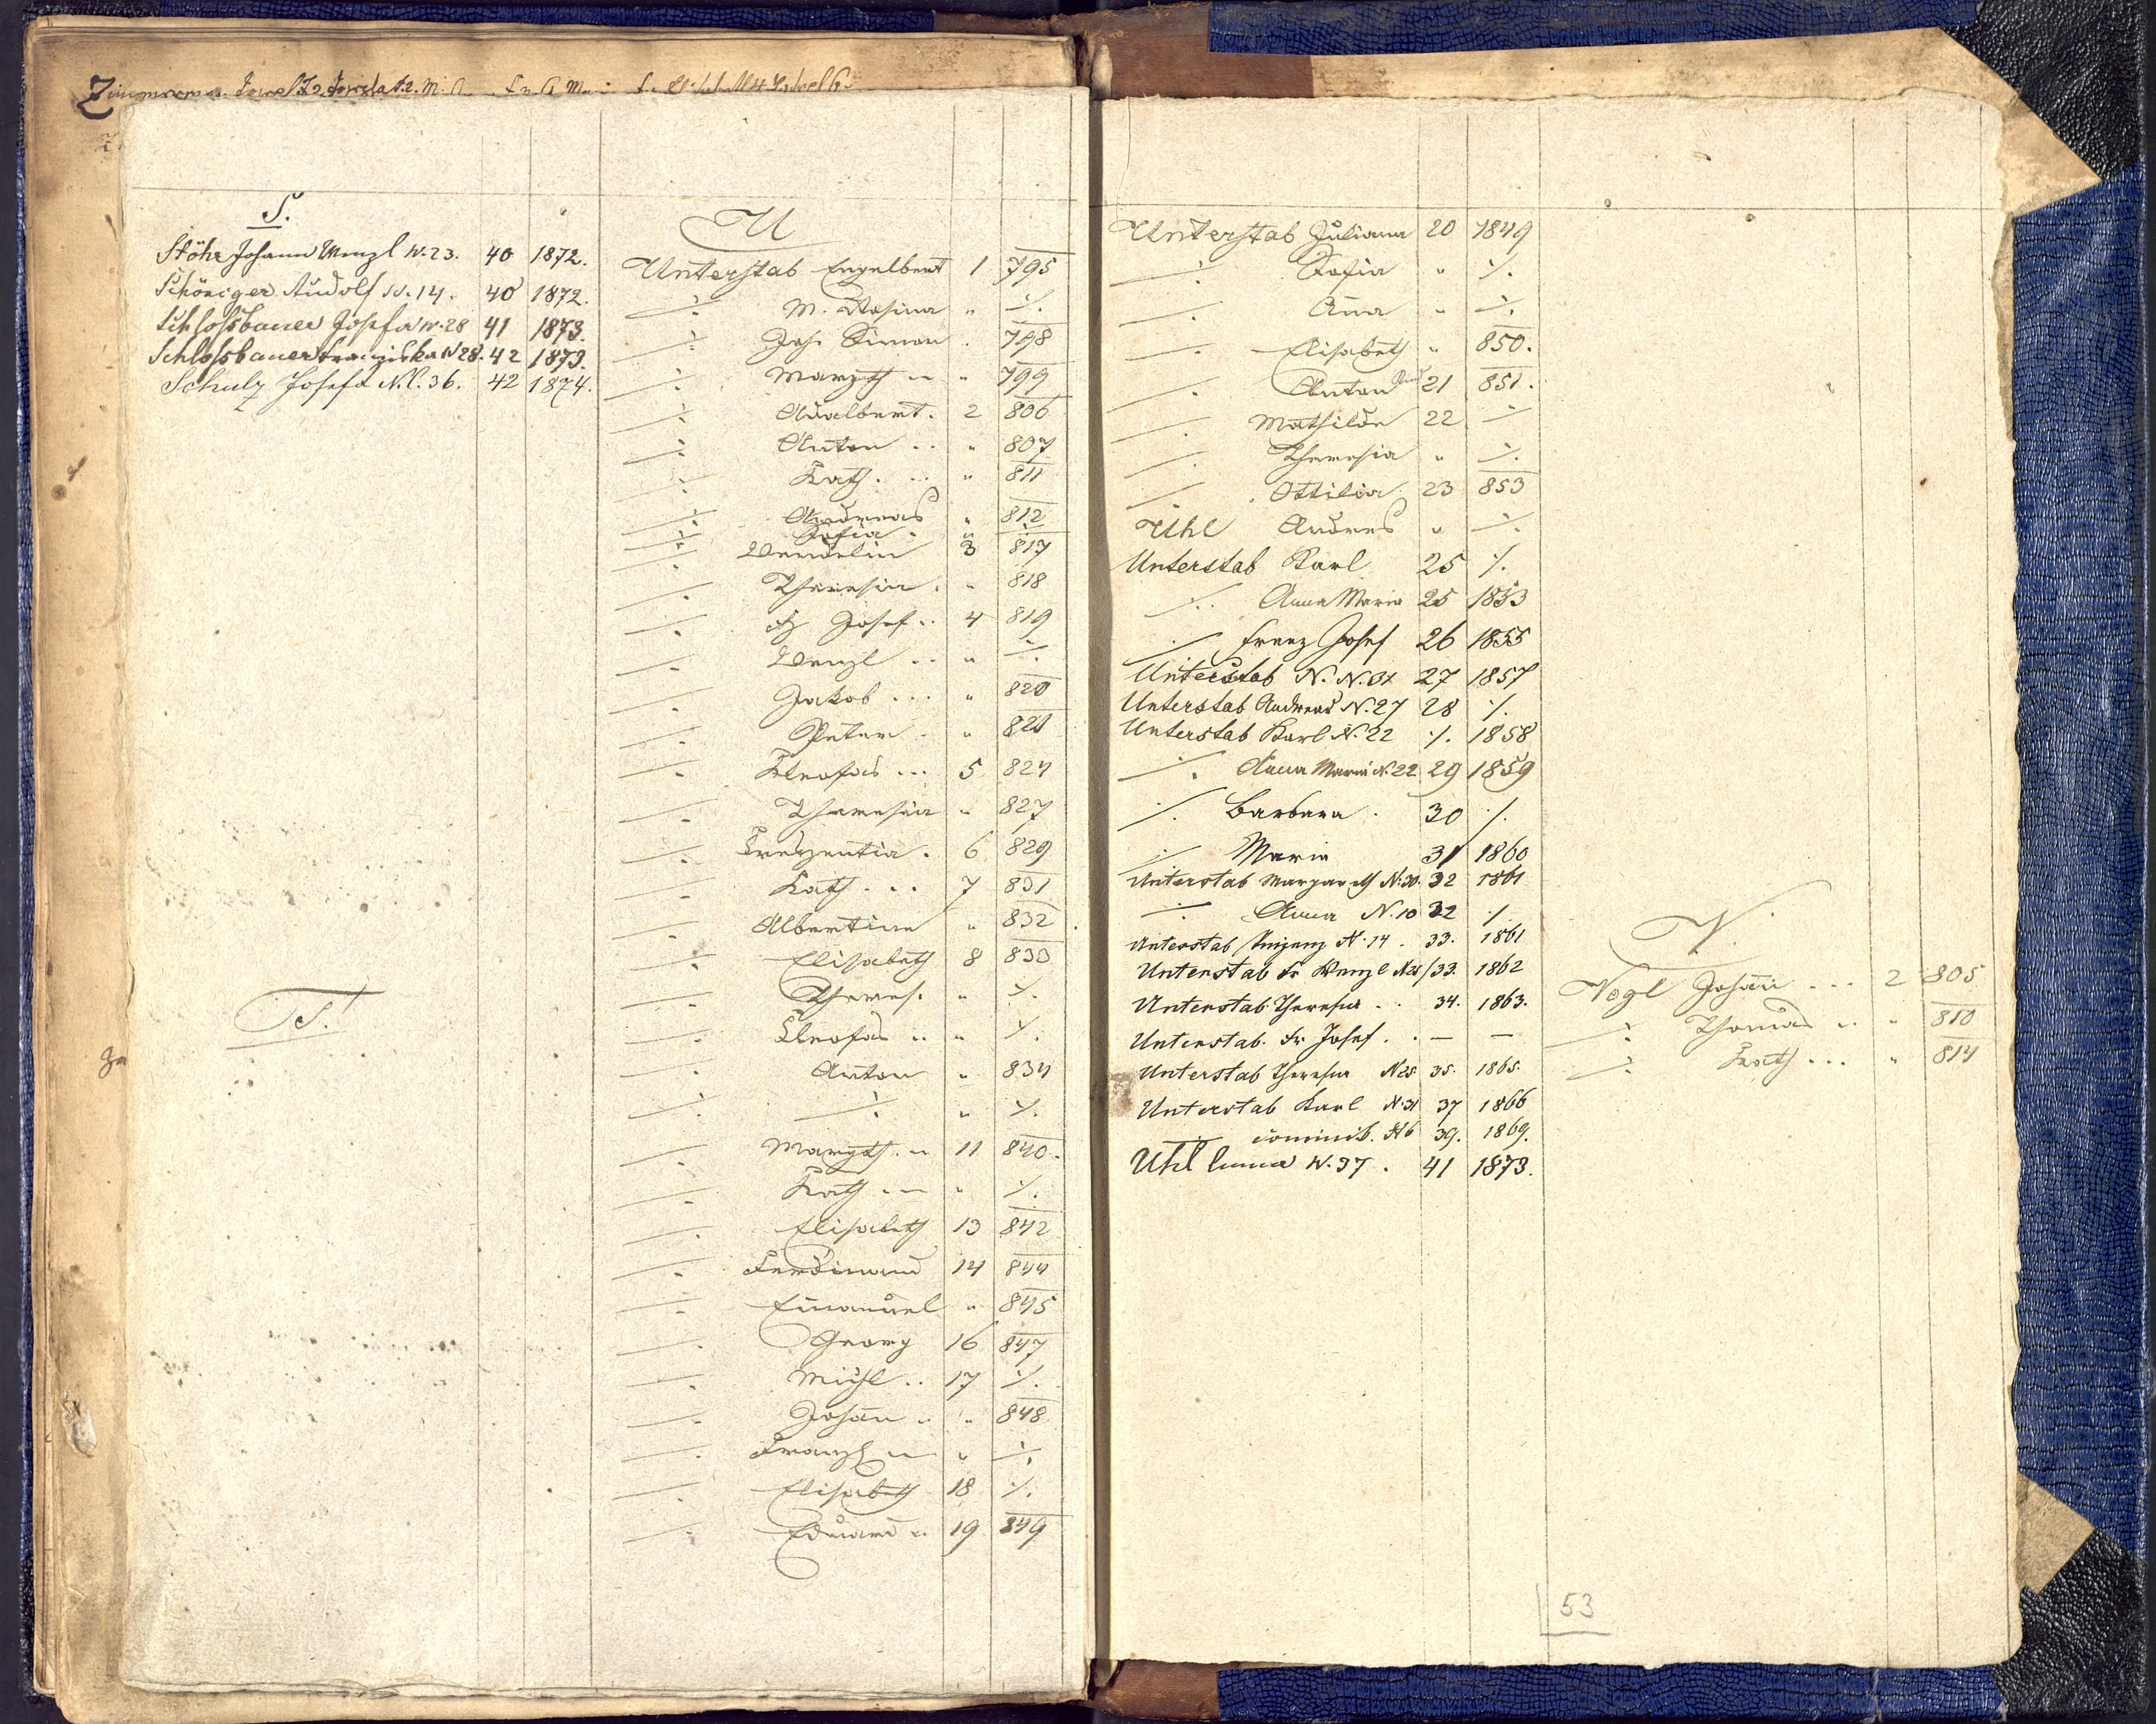 Zimmerman
S.
Stöhr Johann Wenzl N. 23. 40 1872.
Schöniger Rudolf N. 14. 40 1872.
Schloßbauer Josefa N. 28 41 1873.
Schloßbauer Franziska N 28. 42 1873.
Schulz Josefa N. C. 36. 42 1874.
T.
U
Unterstab Engelbert 1 795
-/- M. Rosina " -/-
-/- Joh. Simon . 798
-/- Margth " " 799
-/- Adalbert . 2 806
-/- Anton .. " 807
-/- Kath. .. " 811
-/- Andreas " 812
-/- Sofia . " -/-
-/- Wendelin 3 817
-/- Theresia . " 818
-/- Fz Josef .. 4 819
-/- Wenzl .. " -/-
-/- Jakob ... " 820
-/- Peter . " 821
-/- Kleofas ... 5 824
-/- Theresia " 827
-/- Kreszentia . 6 829
-/- Kath. .. 7 831
-/- Albertine " 832
-/- Elisabeth 8 833
-/- Theres. " -/-
-/- Kleofas .. " -/-
-/- Anton " 834
-/- -/- " -/-
-/- Margth. " 11 840.
-/- Kath " -/-
-/- Elisabeth 13 842
-/- Ferdinand 14 844
-/- Emanuel " 845
-/- Georg 16 847
-/- Michl .. 17 -/-
-/- Johan̄ " " 848
-/- Franz " -/-
-/- Elisabeth 18 -/-
-/- Eduard " 19 849
Unterstab Juliana 20 1849
-/- Sofia " -/-
-/- Anna " -/-
-/- Elisabeth " 850.
-/- Anton 21 851.
-/- Mathilde 22 -/-
-/- Theresia " -/-
-/- Ottilia 23 853
Uhl Andres " -/-
Unterstab Karl 25 -/-
-/- Anna Maria 25 1853
-/- Franz Josef 26 1855
Unterstab N. N. 27 1857
Unterstab Andreas N. 27 28 -/-
Unterstab Karl N. 22 -/- 1858
-/- Anna Maria N. 22 29 1859
-/- Barbara . 30 -/-
-/- Maria 31 1860
Unterstab Margareth N. 30. 32 1861
-/- Anna N. 10 32 -/-
Unterstab N. 14 . 33. 1861
Unterstab Fr Wenzl N 28 33. 1862
Unterstab Theresia .. 34. 1863.
Unterstab. Fr. Josef. . — —
Unterstab Theresia N 25 35. 1865.
Unterstab Karl N. 31 37 1866
— Dominik. N 6 39. 1869.
Uhl N. 37 . 41 1873.
V.
Vogl Johan̄ ... 2 805
-/- Thomas .. " 810
-/- Kath ... " 814
53